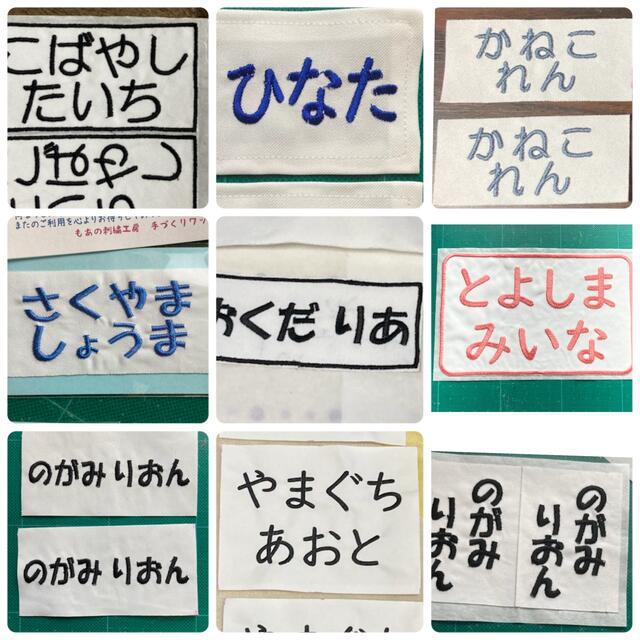 こばやし
たいち
こばやし
たいち
ひなた
かねこ
れん
かねこ
れん
またのご利用を心よりお待ちして
もあの刺繍工房 手づくりワッ
さくやま
しょうま
おくだ りあ
とよしま
みいな
のがみ りおん
のがみ りおん
やまぐち
あおと
やまぐち
のがみ
りおん
のがみ
りおん